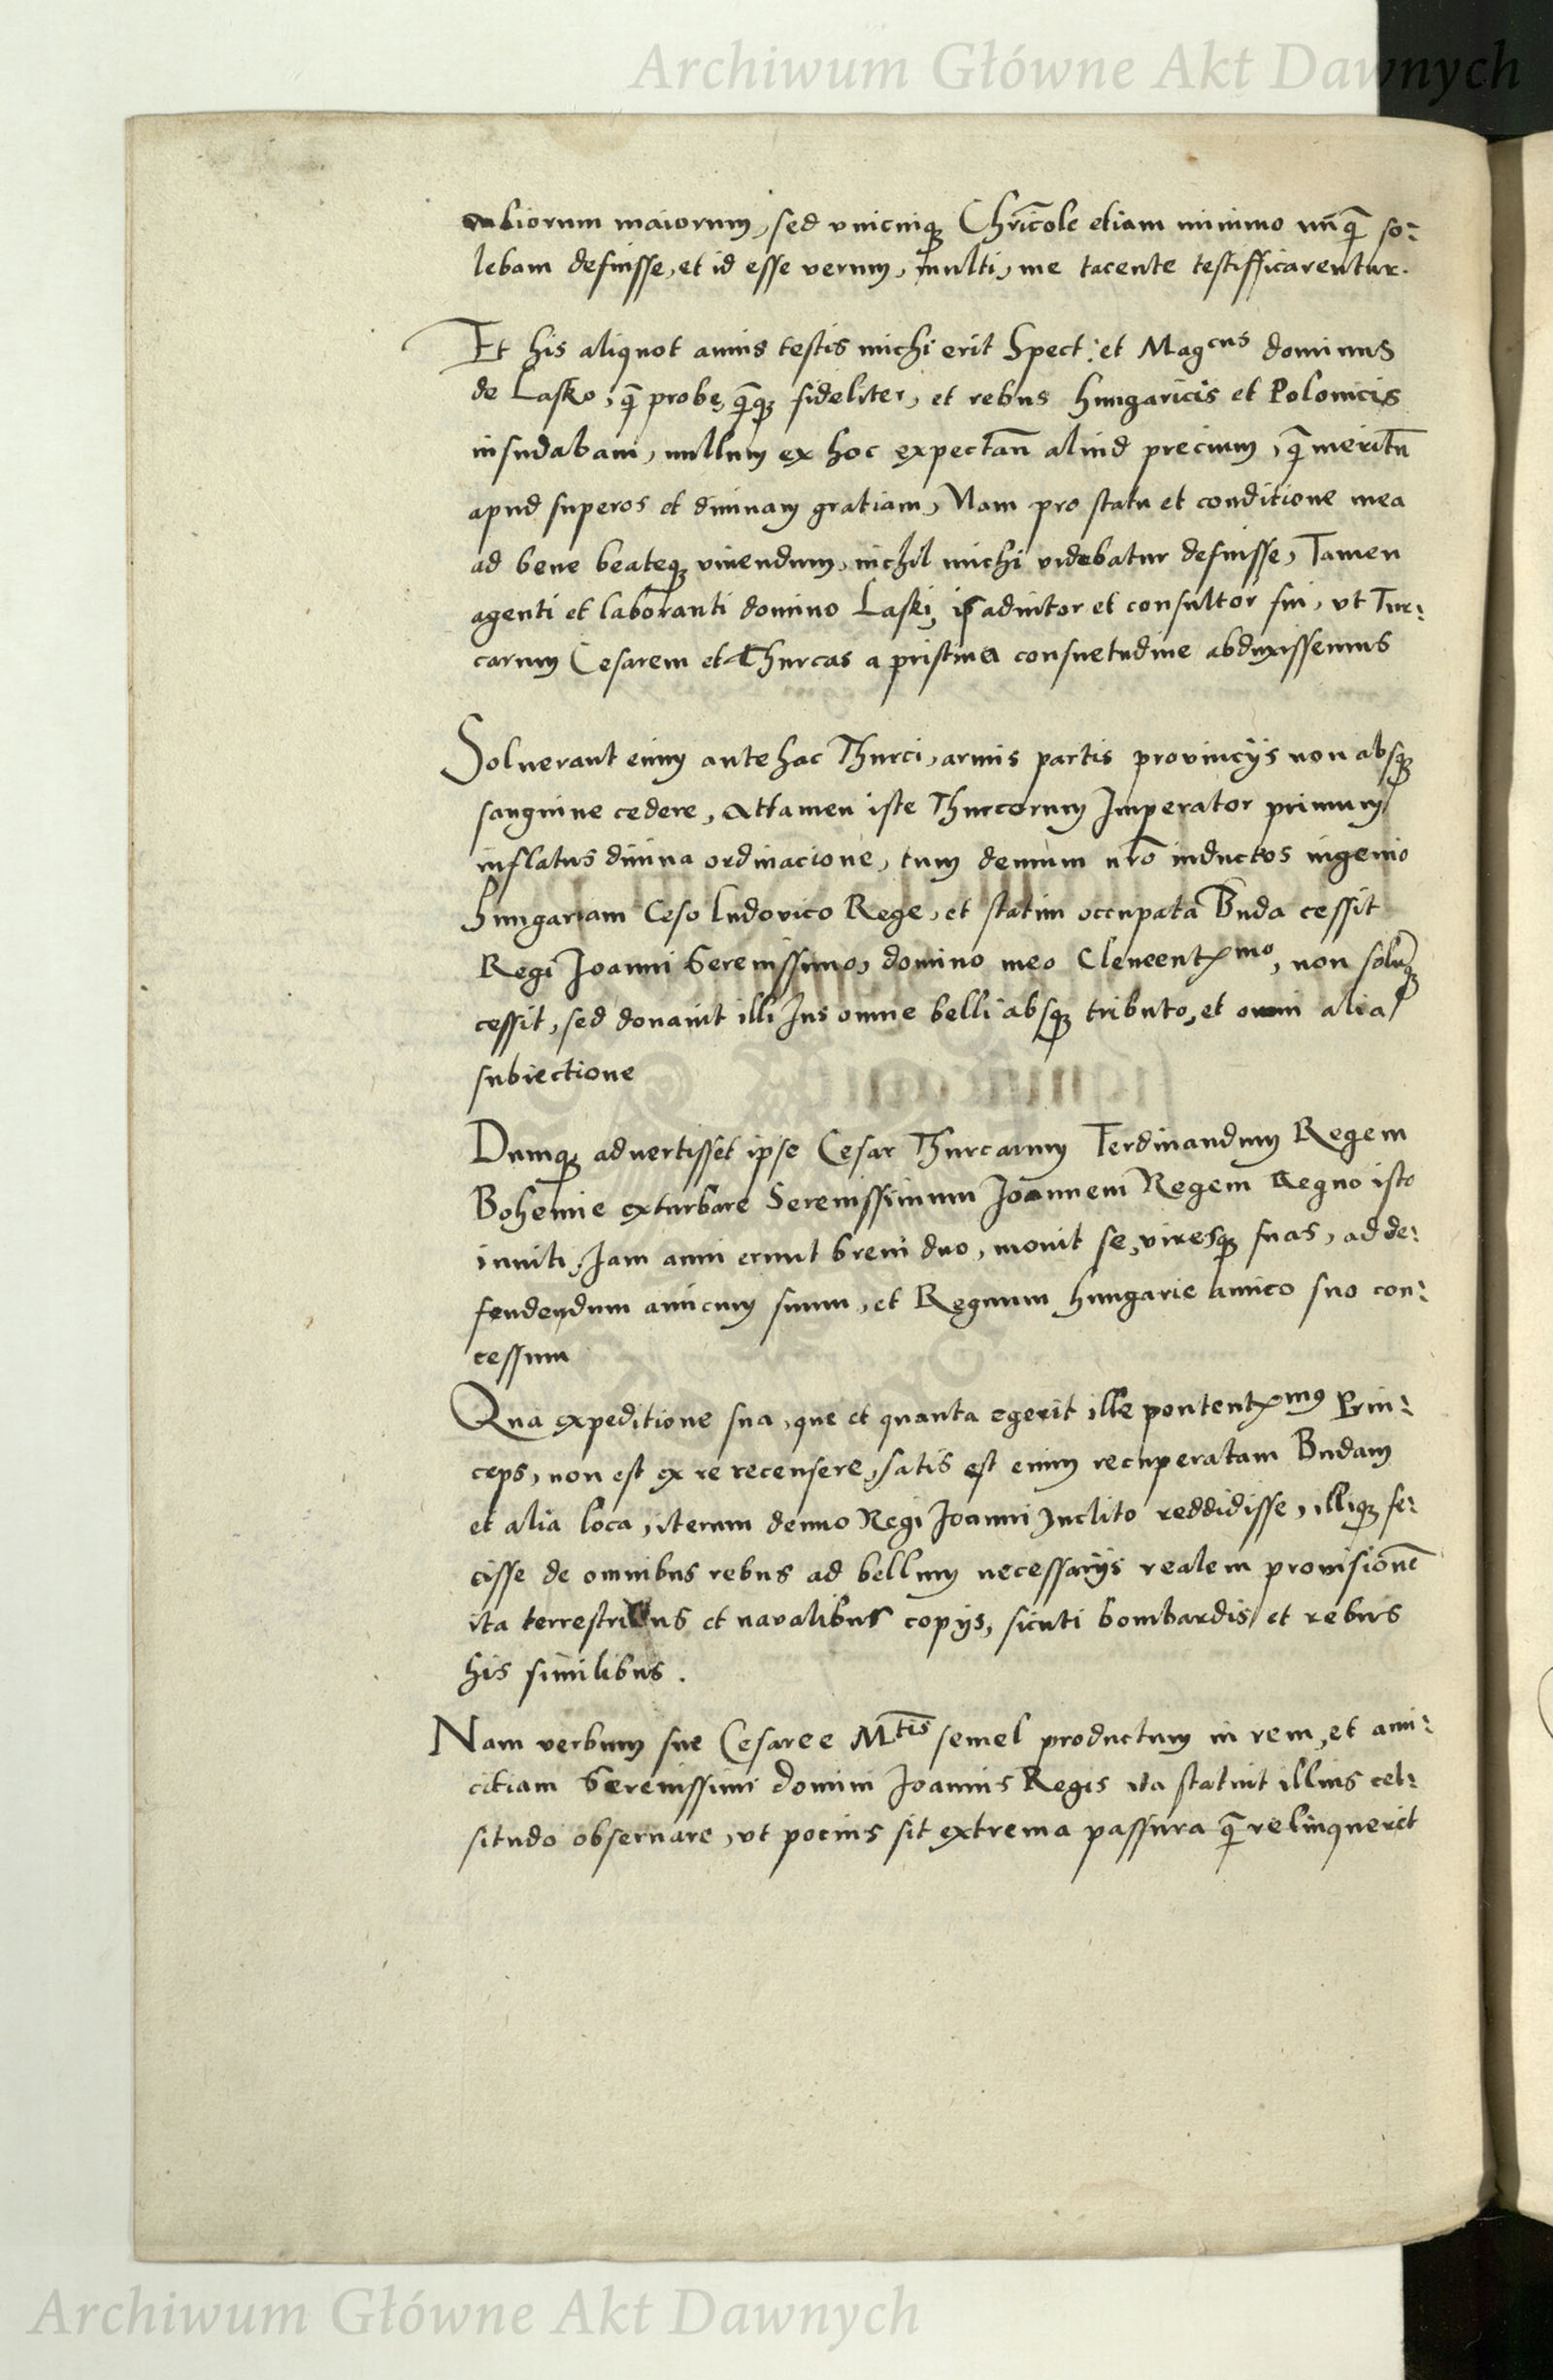 Archiwum Główne Akt Dawnych
aliorum maiorum, sed vnicuiq; Chrīcole etiam minimo nūq̄ so:
lebam defuisse, et id esse verum, multi, me tacente testifficarentur.
Et his aliquot annis testis michi erit Spect: et Magcus dominus
de Lasko, q̄ probe, q̄q; fideliter, et rebus hungaricis et Polonicis
insudabam, nullum ex hoc expectañ aliud precium, q̄ meritū
apud superos et diuinam gratiam, Nam pro statu et conditione mea
ad bene beateq; viuendum, nichil michi videbatur defuisse, Tamen
agenti et laboranti domino Laski, is adiutor et consultor fui, vt Tur:
carum Cesarem et Thurcas a pristina consuetudine abduxissemus
Soluerant enim ante hac Thurci, armis partis prouincijs non absq;
sanguine cedere, Attamen iste Thurcorum Imperator primum
inflatus diuina ordinacione, tum demum nrō inductos ingenio
hungariam Ceso ludovico Rege, et statim occupata Buda cessit
Regi Joanni Serenissimo, domino meo Clemeentxmo, non soluq;
cessit, sed donauit illi Jus omne belli absq; tributo, et omni alia
subiectione
Dumq; aduertisset ipse Cesar Thurcarum Ferdinandum Regem
Bohemie exturbare Serenissimum Joannem Regem Regno isto
inuiti, Jam anni erunt breui duo, mouit se, viresq; suas, ad de:
fendendum amicum suum, et Regnum hungarie amico suo con:
cessum
Qua expeditione sua, que et quanta egerit ille pontentxmus Prin:
ceps, non est ex re recensere, satis est enim recuperatam Budam
et alia loca, iterum denuo Regi Joanni Inclito reddidisse, illiq; fe:
cisse de omnibus rebus ad bellum necessarijs realem prouisionē
ita terrestribus et naualibus copijs, sicuti bombardis et rebus
his similibus.
Nam verbum sue Cesaree Mtis semel productum in rem, et ami:
citiam Serenissimi domini Joannis Regis ita statuit illius cel:
situdo obseruare, vt pocius sit extrema passura q̄ relinquerit
Archiwum Główne Akt Dawnych